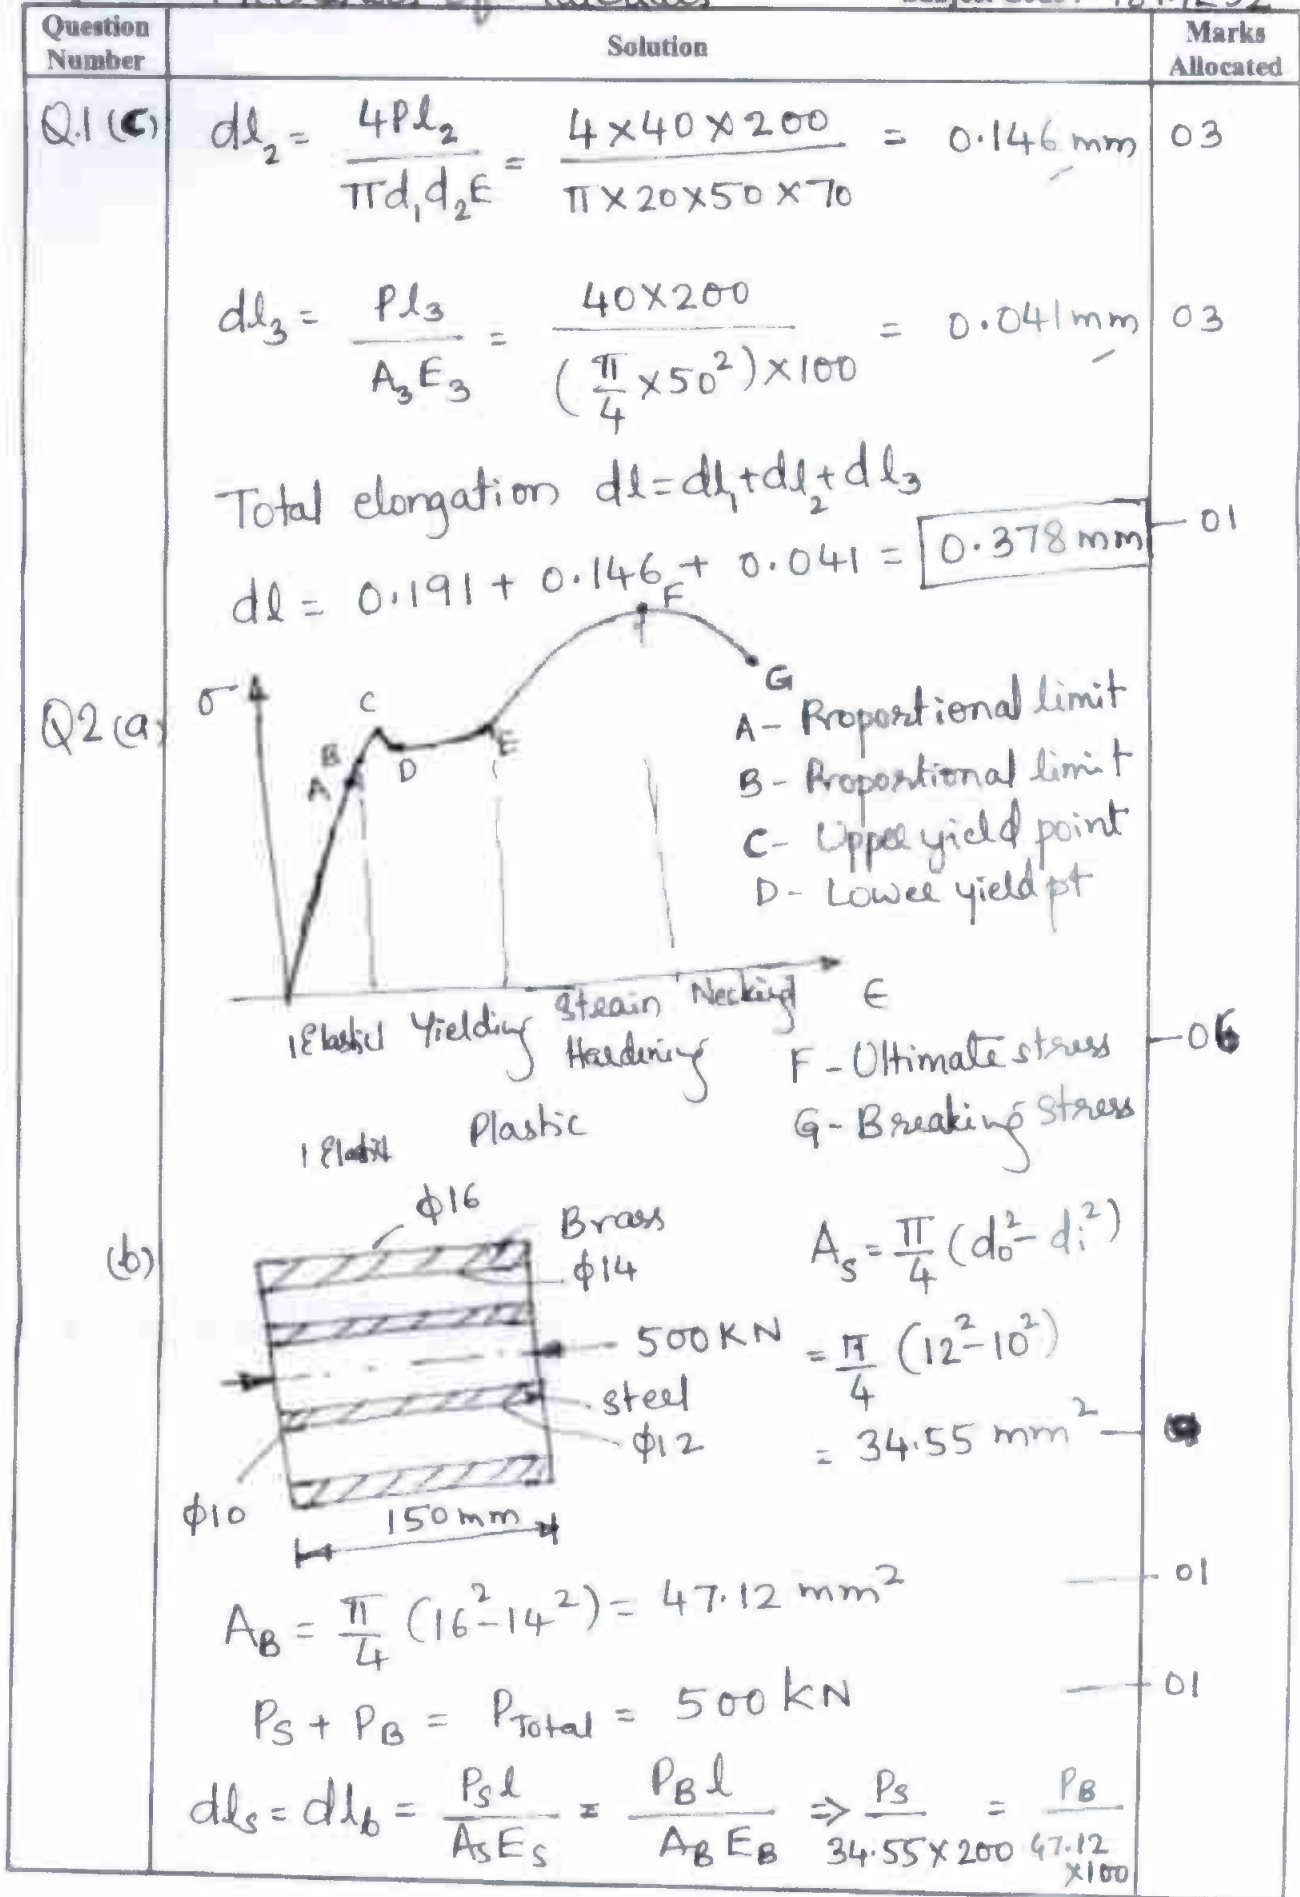 Question Number
Solution
Marks Allocated
Q.1 (C)
dl₂ = 4Pl₂ / πd₁d₂E = 4×40×200 / π×20×50×70 = 0.146 mm
03
dl₃ = Pl₃ / A₃E₃ = 40×200 / (π/4 ×50²)×100 = 0.041 mm
03
Total elongation dl = dl₁+dl₂+dl₃
dl = 0.191 + 0.146 + 0.041 = 0.378 mm
01
Q2 (a)
σ
A
B
C
D
E
F
G
A - Proportional limit
B - Proportional limit
C - Upper yield point
D - Lower yield pt
Elastic Yielding Strain Hardening Necking
ϵ
F - Ultimate stress
G - Breaking stress
06
Elastic Plastic
(b)
φ16
Brass
φ14
500 KN
steel
φ12
φ10
150 mm
A_S = π/4 (d₀² - dᵢ²)
= π/4 (12² - 10²)
= 34.55 mm²
A_B = π/4 (16² - 14²) = 47.12 mm²
01
P_S + P_B = P_Total = 500 kN
01
dl_s = dl_b = P_S l / A_S E_S = P_B l / A_B E_B ⇒ P_S / 34.55×200 = P_B / 47.12 ×100